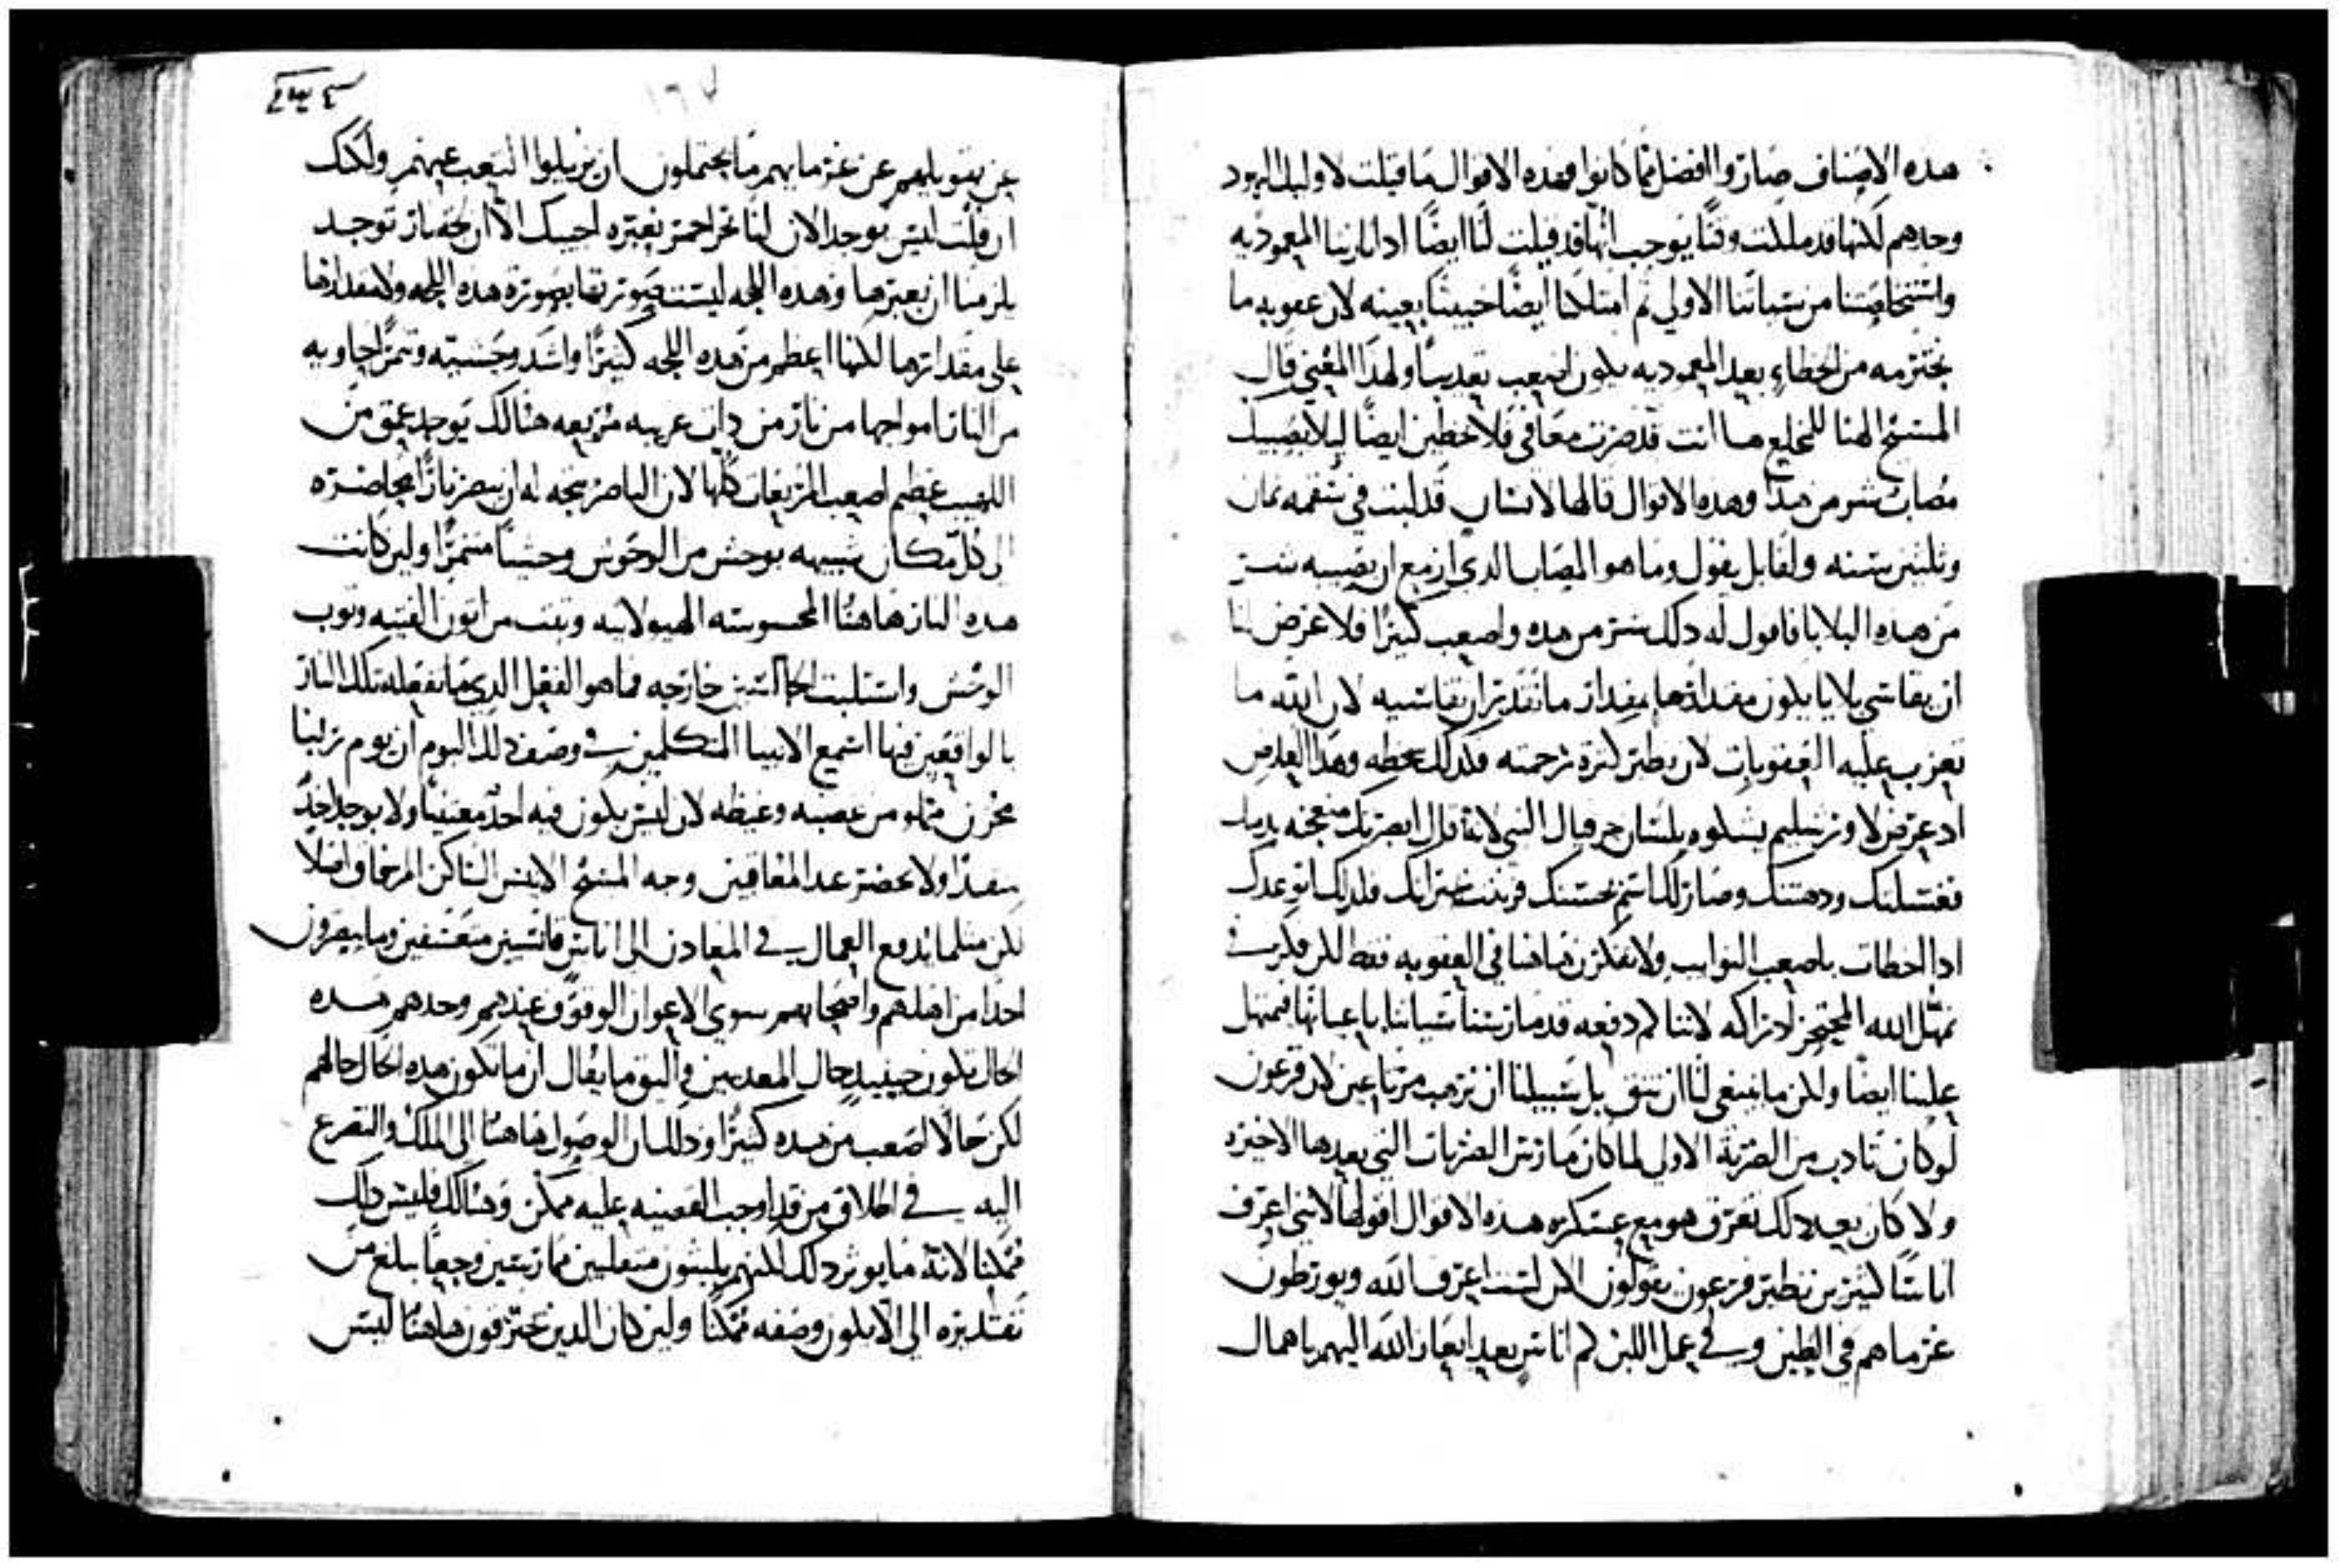 هده الاصناف صاروا افضل مما كانوا فهده الاقوال ما قيلت لاوليك اليهود
وحدهم لكنها قد ملكت وقتًا يوجب انها قد قيلت لنا ايضًا ادا لرينا المعموديه
من سياتنا الاولي ثم امتلكنا ايضًا خبيثًا بعينه لان عقوبه ما
نجترمه من الخطاء بعد المعموديه يكون اصعب تعديبًا ولهدا المعني قال
المسيح الهنا للمخلع ها انت قد صرت معافي فلا تخطين ايضًا ليلا يصيبك
مصاب شر من هدا وهده الاقوال قالها لانسان قد لبث في سقمه تمان
وتلتين سنه ولقايل يقول وما هو المصاب الدي ازمع ان يصيبه شر
من هده البلايا فاقول له دلك شر من هده واصعب كثيرًا فلا عرض لنا
ان نقاسي بلايا يكون مقدارها بمقدار ما نقدر ان نقاسيه لان الله ما
تعزب عليه العقوبات لان نظير كثرة رحمته فكدلك سخطه وهدا
لاورشليم بلسان حزقيال النبي لانه قال ابصرتك متعجنه بدمك
فغسلتك ودهنتك وصار لك اسم بحسنك فزنيت فلدلك اتوعدك
ادا اخطات باصعب النوايب ولا تفكرن هاهنا في العقوبه فقط لكن فكر في
تمهل الله لاننا كم دفعه قد مارسنا سياتنا باعيانها فتمهل
علينا ايضًا ولكن ما ينبغي لنا ان نثق بل سبيلنا ان نرهب مرتاعين لان فرعون
لو كان تادب من الضربة الاولي لما كان مارس الضربات التي بعدها الاخيره
ولا كان بعد دلك تغرق هو مع عسكره هده الاقوال اقولها لانني اعرف
اناسًا كثيرين نظير فرعون يقولون الان لست اعرف الله ويورطون
غرماهم في الطين وفي عمل اللبن كم اناس بعد ايعاز الله اليهم باهمال
عن تهويلهم عن غرمايهم ما يحتملون ان يزيلوا التعب عنهم ولكنك
ان قلت ليس يوجد الان لنا بحر احمر نعبره اجيبك الا ان لجة نار توجد
يلزمنا ان نعبرها وهده اللجه ليست صورتها بصورة هده اللجه ولا مقدارها
علي مقدارها لكنها اعظم من هده اللجه كثيرًا واشد وحشيه وتنمرًا حاويه
من النار امواجها من نار من غريبه مريعه هنالك يوجد عمق من
اللهيب عظيم اصعب المريعات كلها لان الناظر يتجه له ان يبصر نارًا محاضره
الي كل مكان شبيهه بوحش من الوحوش وحشيًا متنمرًا ولين كانت
هده النار هاهنا المحسوسه الهيولانيه وثبت من اتون الفتيه وتوب
الوحش واستلبت الجالسين خارجه فما هو الفعل الدي ما تفعله تلك النار
بالواقعين فيها اسمع الانبيا المتكلمين في وصف دلك اليوم ان يوم ربنا
محزن مملو من غضبه وغيظه لان ليس يكون فيه احد معينًا ولا يوجد احد
منقدًا ولا يحضر عند المعاقبين وجه المسيح الانيس الساكن اصلا
لكن مثلما يدفع العمال في المعادن الي اناس قاسيين متعسفين وما يبصرون
احدًا من اهلهم واصحابهم سوي الاعوان الوقوف عندهم وحدهم هده
الحال تكون حينيد حال المعدبين واليق ما يقال ان ما تكون هده الحال حالهم
لكن حالًا اصعب من هده كثيرًا ودلك ان الوصول هاهنا الي الملك والتضرع
اليه في اطلاق من قد اوجب القضيه عليه ممكن وهنالك فليس دلك
ممكنًا لانه ما يوثر دلك لكنهم يلبثون متقلبين ممارسين وجعًا يبلغ من
تقديره الي الا يكون وصفه ممكنًا ولين كان الدين يحترقون هاهنا ليس